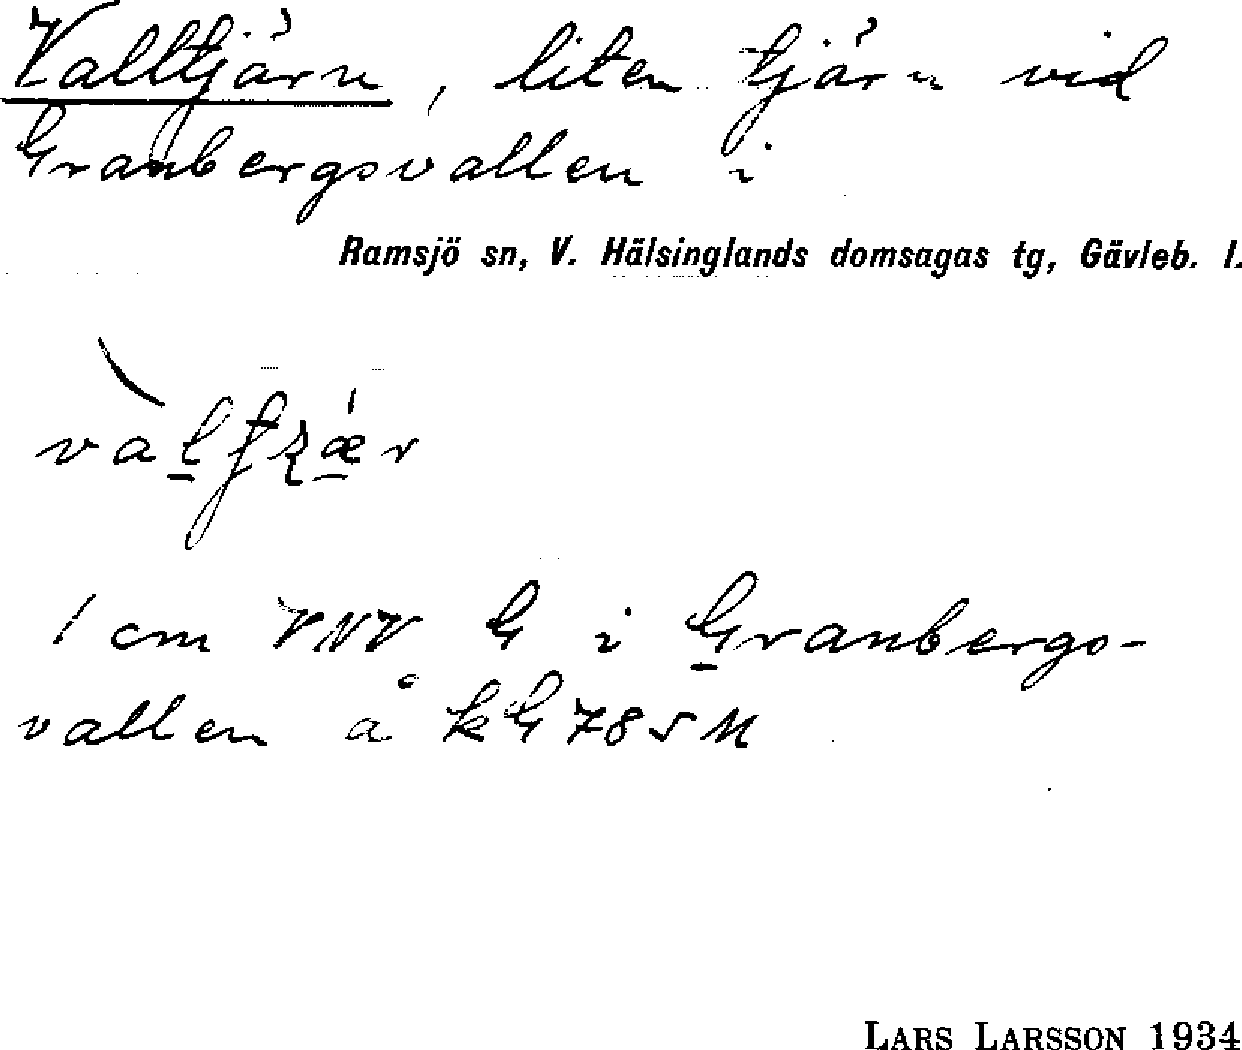 Valltjärn, liten tjärn vid
Granbergsvallen i
Ramsjö sn, V. Hälsinglands domsagas tg, Gävleb. l.
1 cm VNV G i Granbergs-
vallen å kG 785 M
LARS LARSSON 1934